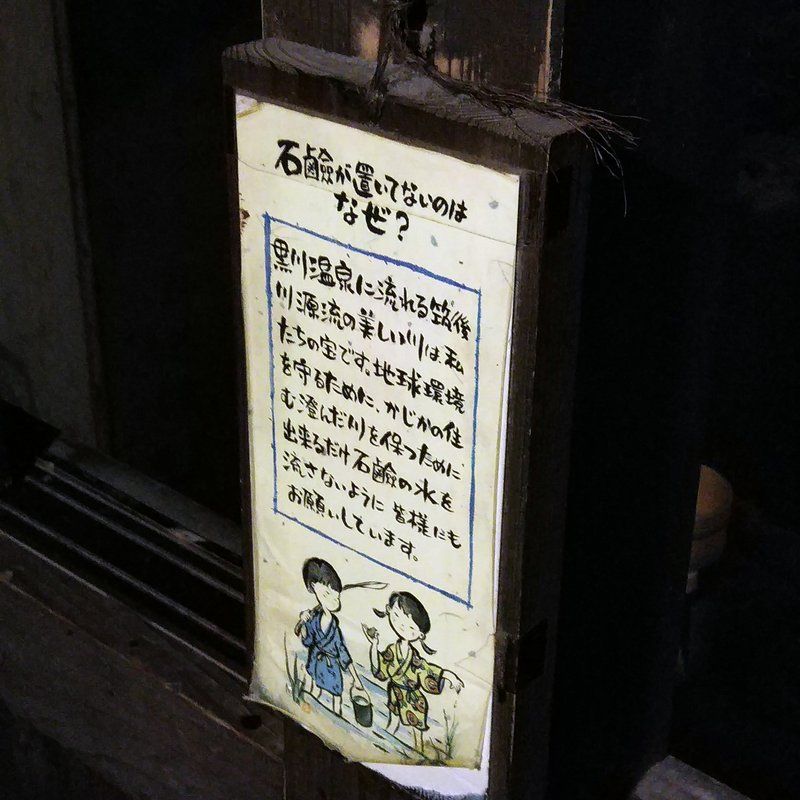 石鹸が置いてないのは
なぜ？
黒川温泉に流れる筑後
川源流の美しい川は私
たちの宝です。地球環境
を守るために、かじかの住
む澄んだ川を保つために
出来るだけ石鹸の水を
流さないように 皆様にも
お願いしています。